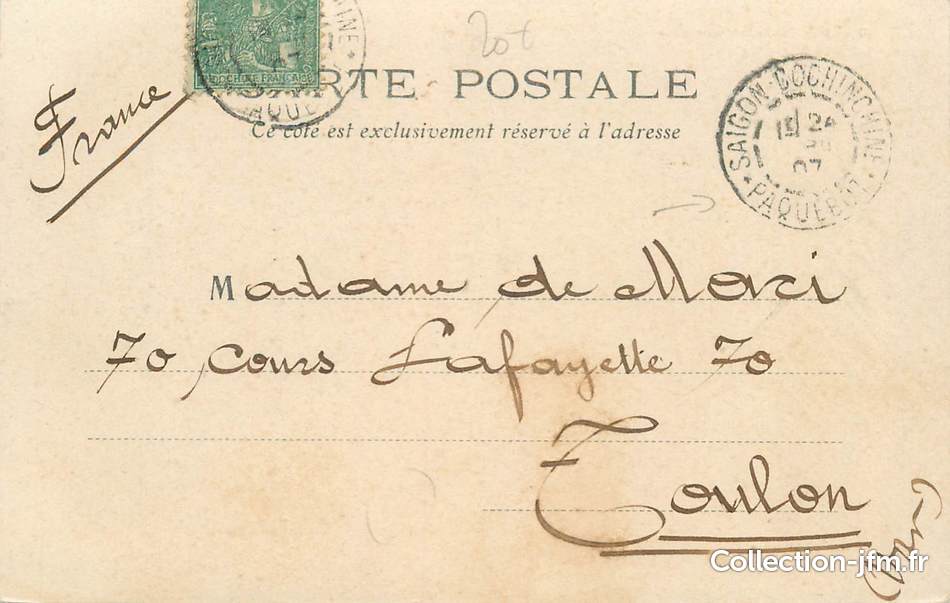 20€
INDOCHINE FRANÇAISE
CARTE POSTALE
Ce côté est exclusivement réservé à l'adresse
France
SAIGON-COCHINCHINE
24
07
PAQUEBOT
Madame de Mari
70, cours Lafayette 70
Toulon
(Var)
Collection-jfm.fr